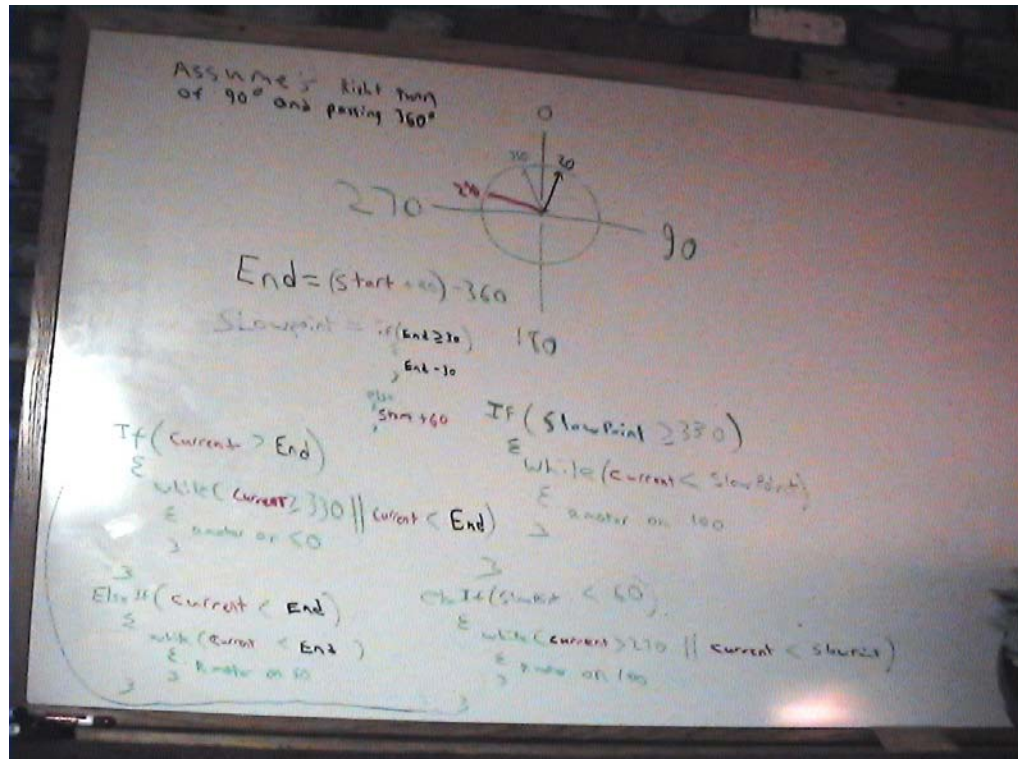 Assume:- Right turn
of 90° and passing 360°
0
350 20
270
270
90
180
End = (Start + 90) - 360
Slowpoint = if (End ≥ 30)
{
End - 30
}
else
{
Start + 60
}
If (Current > End)
{
while (Current ≥ 330 || Current < End)
{
motor on 50
}
}
Else If (Current < End)
{
while (Current < End)
{
R motor on 50
}
}
IF (SlowPoint ≥ 330)
{
while (Current < SlowPoint)
{
motor on 100
}
}
Else If ( < 60)
{
while (Current > 270 || Current < Slowpoint)
{
R motor on 100
}
}